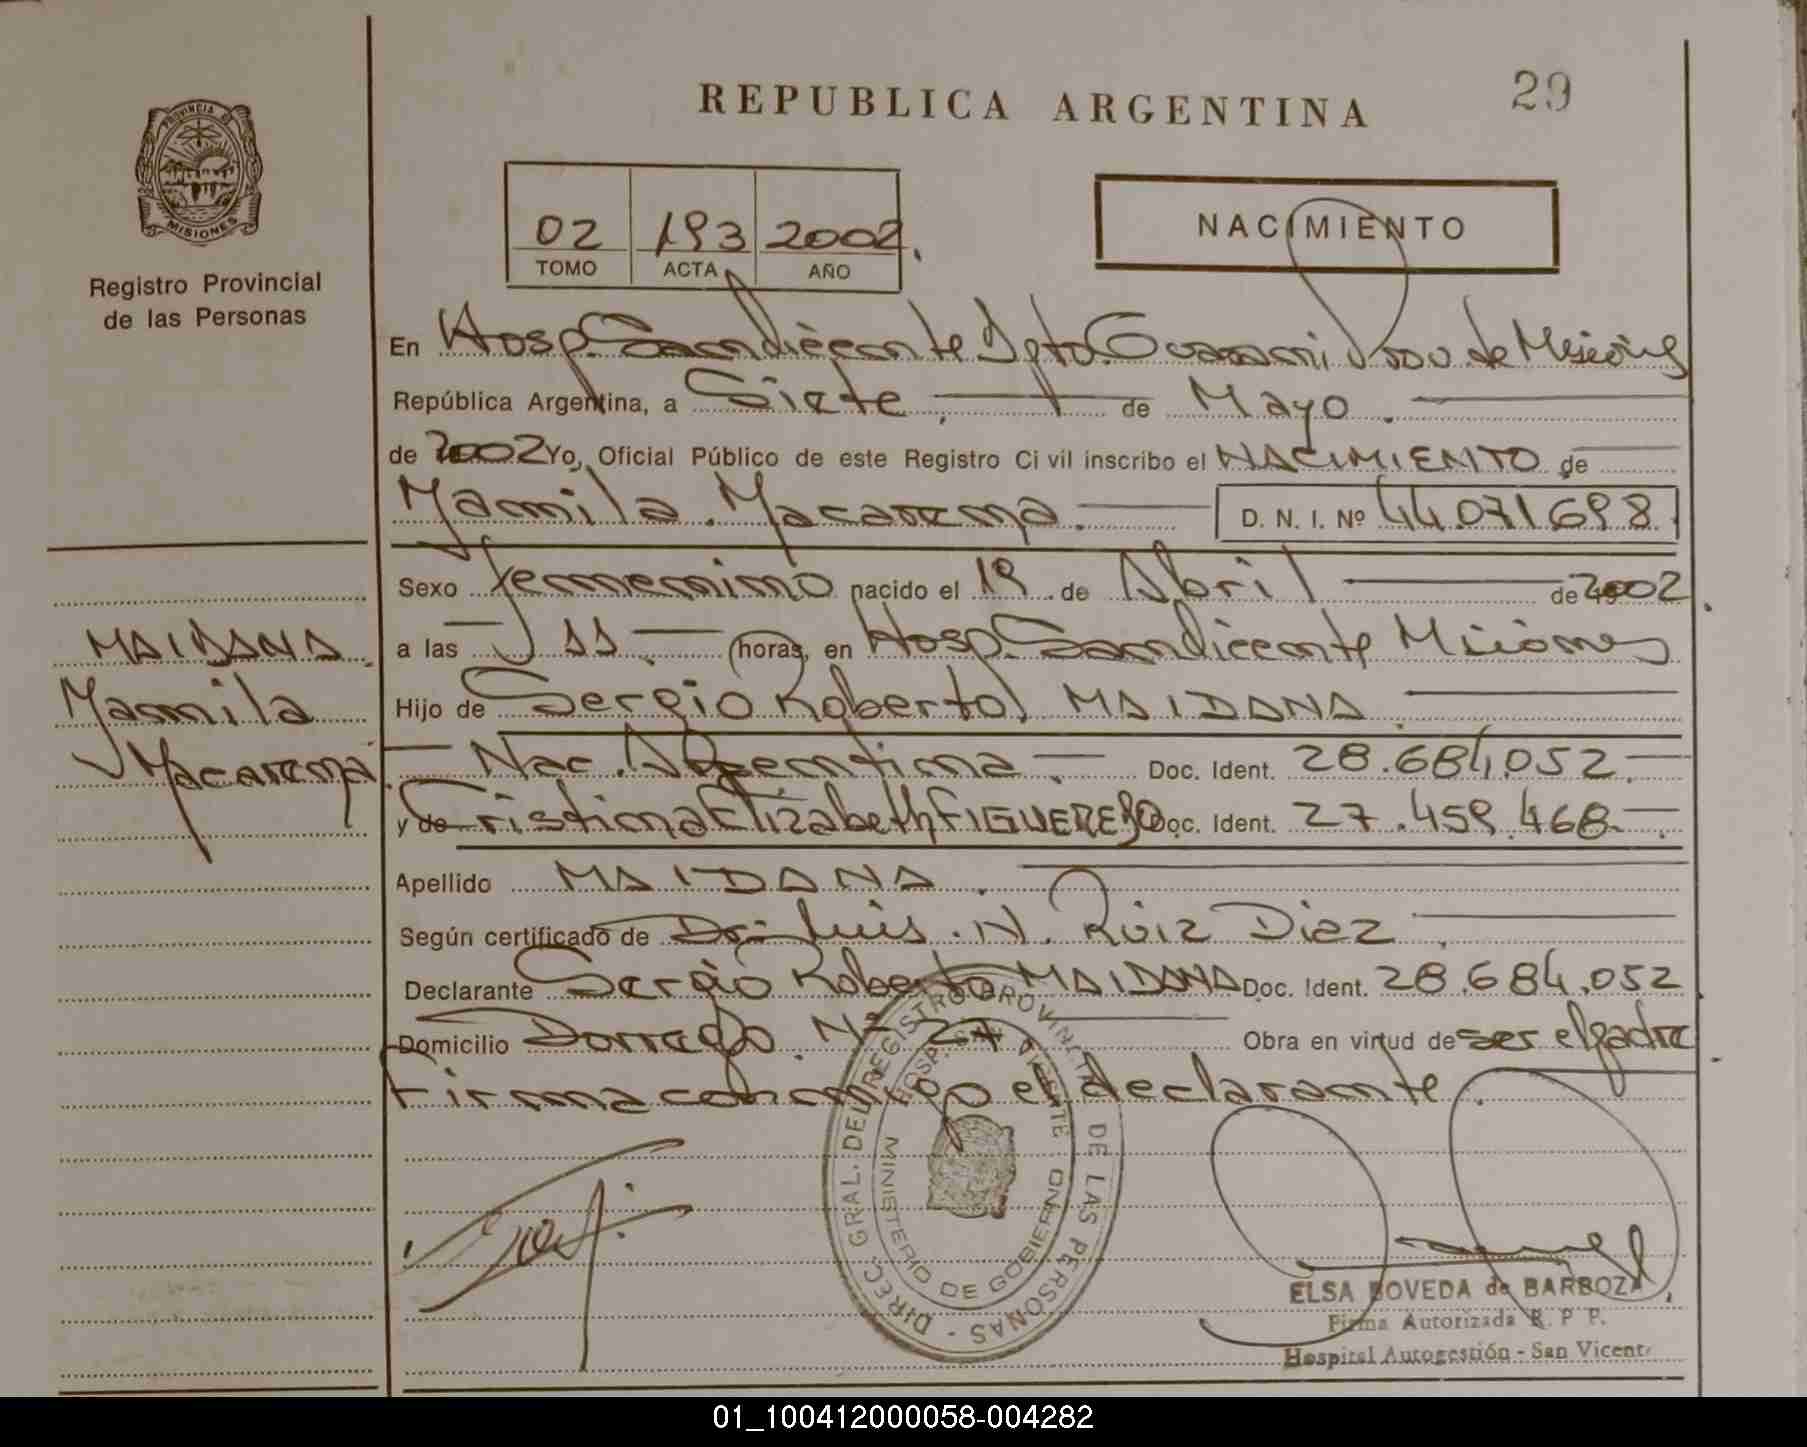 29
REPUBLICA ARGENTINA
PROVINCIA DE
MISIONES
Registro Provincial
de las Personas
02 193 2002.
TOMO ACTA AÑO
NACIMIENTO
En Hosp. San Vicente Dpto. Guarani Prov. de Misiones
República Argentina, a Siete de Mayo.
de 2002 Yo, Oficial Público de este Registro Civil inscribo el NACIMIENTO de
Yamila Macarena. D. N. I. Nº 44.071.698.
Sexo femenino nacido el 19 de Abril de 2002.
a las 11. horas, en Hosp. San Vicente Misiones
Hijo de Sergio Roberto MAIDANA.
Nac. Argentina. Doc. Ident. 28.684.052.
y de Cristina Elizabeth FIGUEREDO Doc. Ident. 27.459.468.
Apellido MAIDANA.
Según certificado de Dr. Luis. N. Ruiz Diaz.
Declarante Sergio Roberto MAIDANA Doc. Ident. 28.684.052
Domicilio Dorrego. Nº 27 Obra en virtud de ser el padre.
Firma conmigo el declarante.
MAIDANA.
Yamila
Macarena.
DIREC. GRAL. DEL REGISTRO PROVINCIAL DE LAS PERSONAS -
HOSP. SAN VICENTE
MINISTERIO DE GOBIERNO
ELSA BOVEDA de BARBOZA
Firma Autorizada R. P P.
Hospital Autogestión - San Vicente
01_100412000058-004282